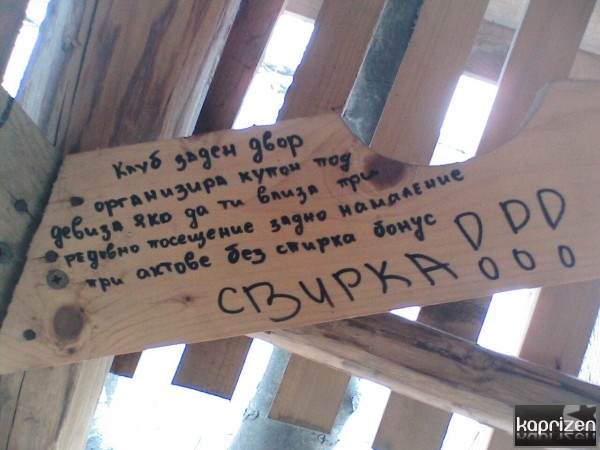 Клуб заден двор
организира купон под
девиза яко да ти влиза при
редовно посещение задно намаление
при актове без спирка бонус
СВИРКА!!!
kaprizen